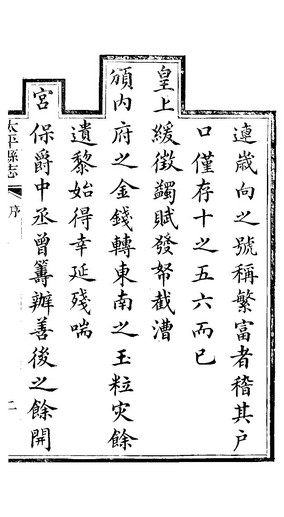 連歲向之號稱繁富者稽其戶
口僅存十之五六而已
皇上緩徵蠲賦發帑截漕
頒內府之金錢轉東南之玉粒災餘
遺黎始得幸延殘喘
宮保爵中丞曾籌辦善後之餘開
太平縣志
序
二